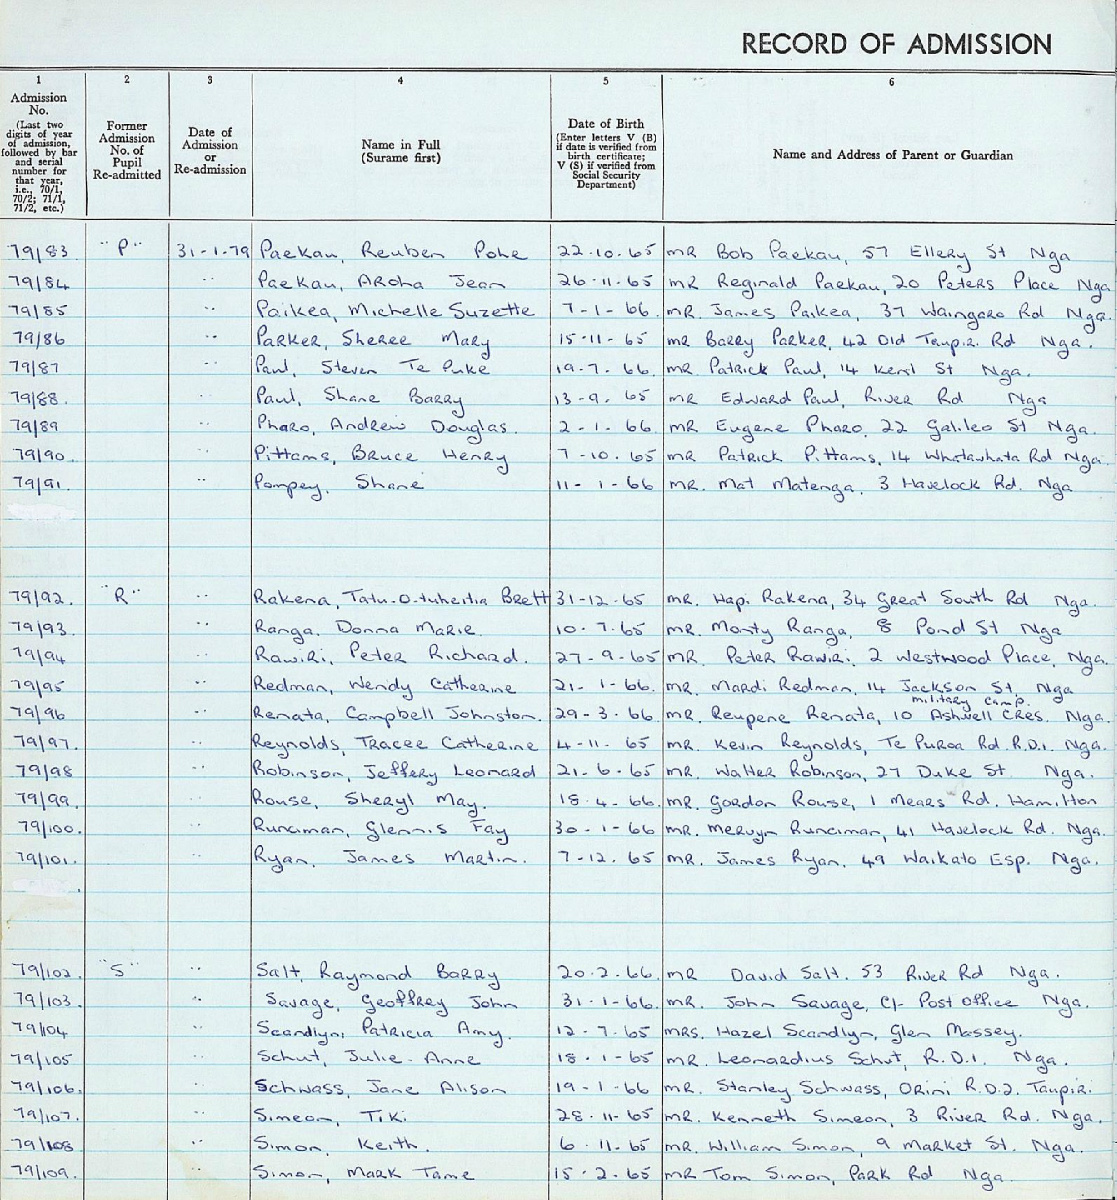 RECORD OF ADMISSION
1 2 3 4 5 6
Admission No. (Last two digits of year of admission, followed by bar and serial number for that year, i.e., 70/1, 70/2; 71/1, 71/2, etc.)
Former Admission No. of Pupil Re-admitted
Date of Admission or Re-admission
Name in Full (Surame first)
Date of Birth (Enter letters V (B) if date is verified from birth certificate; V (S) if verified from Social Security Department)
Name and Address of Parent or Guardian
79/83 "P" 31-1-79 Paekau, Reuben Pohe 22.10.65 MR Bob Paekau, 57 Ellery St Nga
79/84 " Paekau, Aroha Jean 26-11-65 MR Reginald Paekau, 20 Peters Place Nga
79/85 " Paikea, Michelle Suzette 7-1-66. MR. James Paikea, 37 Waingaro Rd Nga.
79/86 " Parker, Sheree Mary 15-11-65 MR Barry Parker, 42 Old Taupiri Rd Nga.
79/87 " Paul, Steven Te Puke 19-7-66. MR Patrick Paul, 14 Kent St Nga.
79/88. " Paul, Shane Barry 13-9.65 MR Edward Paul, River Rd Nga
79/89 " Pharo, Andrew Douglas. 2-1-66. MR Eugene Pharo, 22 Galileo St Nga.
79/90. " Pittams, Bruce Henry 7-10.65 MR Patrick Pittams, 14 Whatawhata Rd Nga.
79/91. " Pompey, Shane 11-1-66 MR. Mat Matenga, 3 Havelock Rd. Nga
79/92. "R" " Rakena, Tatu-o-tuheitia Brett 31-12-65 MR. Hapi Rakena, 34 Great South Rd Nga.
79/93. " Ranga, Donna Marie. 10.7.65 MR. Monty Ranga, 8 Pond St Nga
79/94 " Rawiri, Peter Richard. 27-9-65 MR. Peter Rawiri. 2 Westwood Place, Nga.
79/95 " Redman, Wendy Catherine 21-1-66. MR. Mardi Redman, 14 Jackson St. Nga
military camp.
79/96 " Renata, Campbell Johnston. 29-3-66. MR. Reupene Renata, 10 Ashwell Cres. Nga.
79/97. " Reynolds, Tracee Catherine 4-11-65 MR. Kevin Reynolds, Te Puroa Rd. R.D.1. Nga.
79/98 " Robinson, Jeffery Leonard 21-6-65 MR. Walter Robinson, 27 Duke St. Nga.
79/99. " Rouse, Sheryl May. 18.4-66. MR. Gordon Rouse, 1 Mears Rd. Hamilton
79/100. " Runciman, Glennis Fay 30-1-66 MR. Mervyn Runciman, 41 Havelock Rd. Nga.
79/101. " Ryan, James Martin. 7-12.65 MR. James Ryan, 49 Waikato Esp. Nga.
79/102. "S" " Salt, Raymond Barry 20.2.66. MR David Salt. 53 River Rd Nga.
79/103. " Savage, Geoffrey John 31.1-66. MR. John Savage, C/- Post Office Nga.
79/104 " Scandlyn, Patricia Amy. 12-7.65 MRS. Hazel Scandlyn, Glen Massey.
79/105 " Schut, Julie-Anne 18.1-65 MR. Leonardius Schut, R.D.1. Nga.
79/106. " Schwass, Jane Alison 19-1-66 MR. Stanley Schwass, Orini R.D.2. Taupiri.
79/107. " Simeon, Tiki. 28-11-65 MR. Kenneth Simeon, 3 River Rd. Nga.
79/108 " Simon, Keith. 6.11.65 MR. William Simon, 9 Market St. Nga.
79/109. " Simon, Mark Tame 15-2.65 MR Tom Simon, Park Rd Nga.